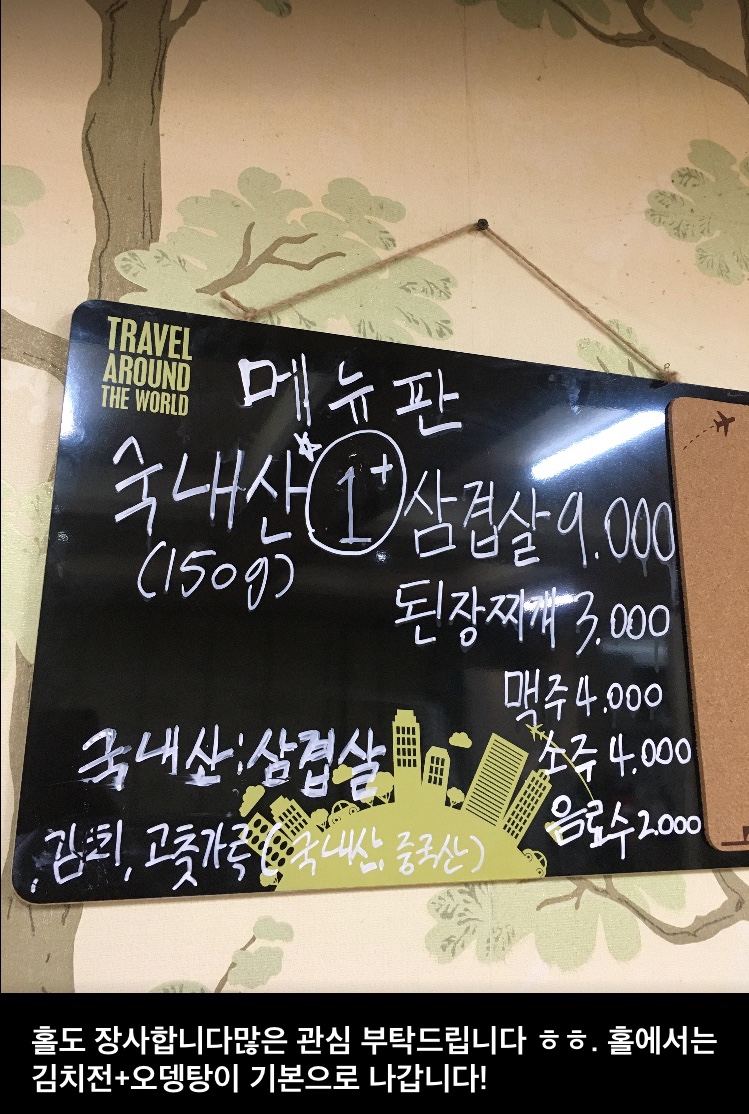 TRAVEL
AROUND
THE WORLD
메뉴판
국내산 1+ 삼겹살 9.000
(150g)
된장찌개 3.000
맥주 4.000
소주 4.000
음료수 2.000
국내산:삼겹살
.김치, 고춧가루(국내산, 중국산)
홀도 장사합니다많은 관심 부탁드립니다 ㅎㅎ. 홀에서는
김치전+오뎅탕이 기본으로 나갑니다!